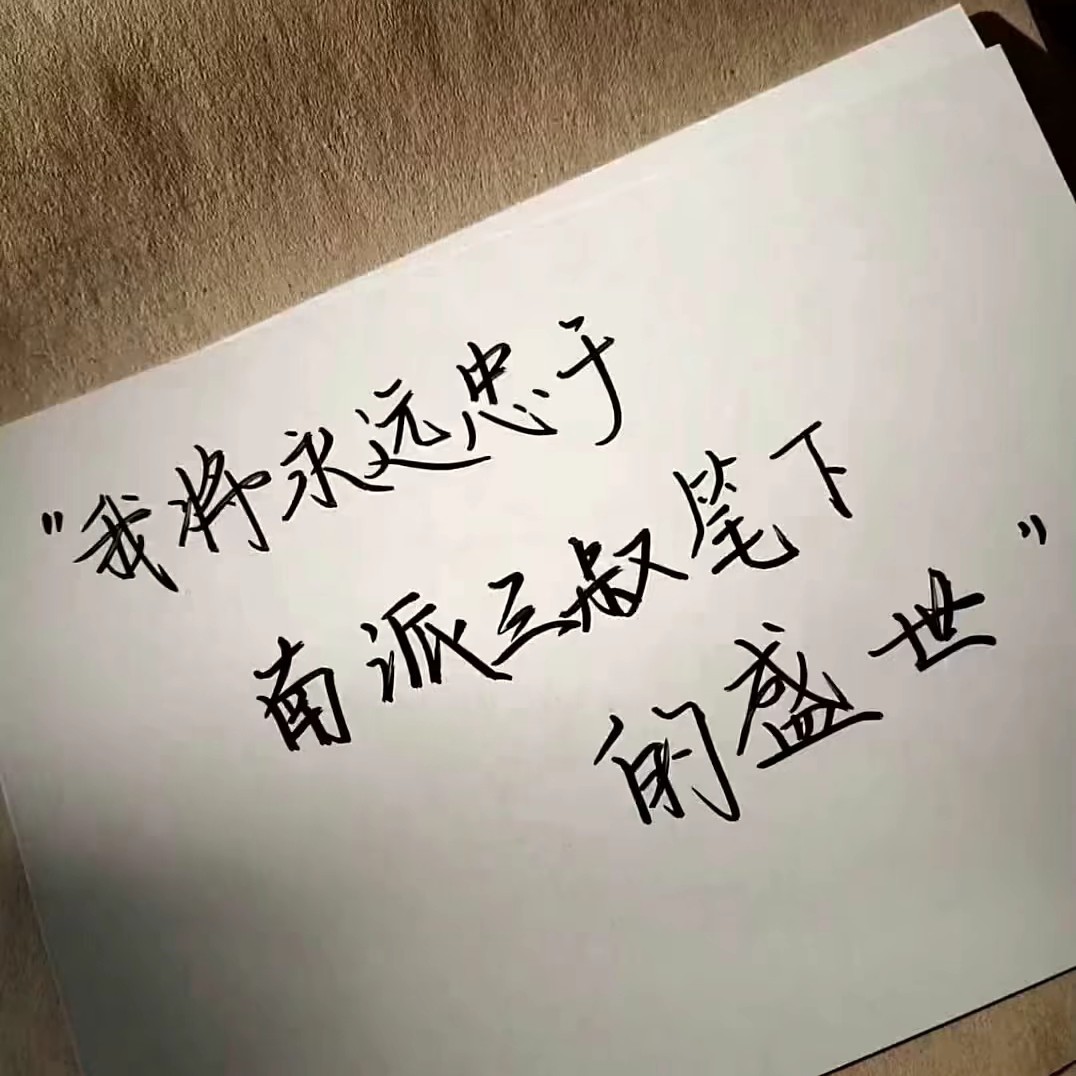 "我将永远忠于
南派三叔笔下
的盛世"